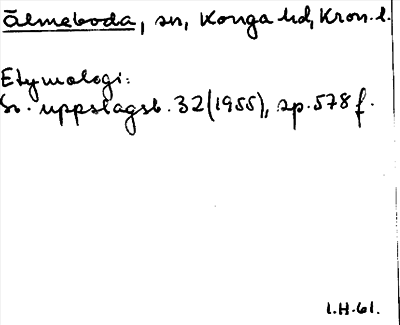 Älmeboda, sn, Konga hd, Kron. l.
Etymologi:
Sv. uppslagsb. 32 (1955), sp. 578 f.
I.H.61.